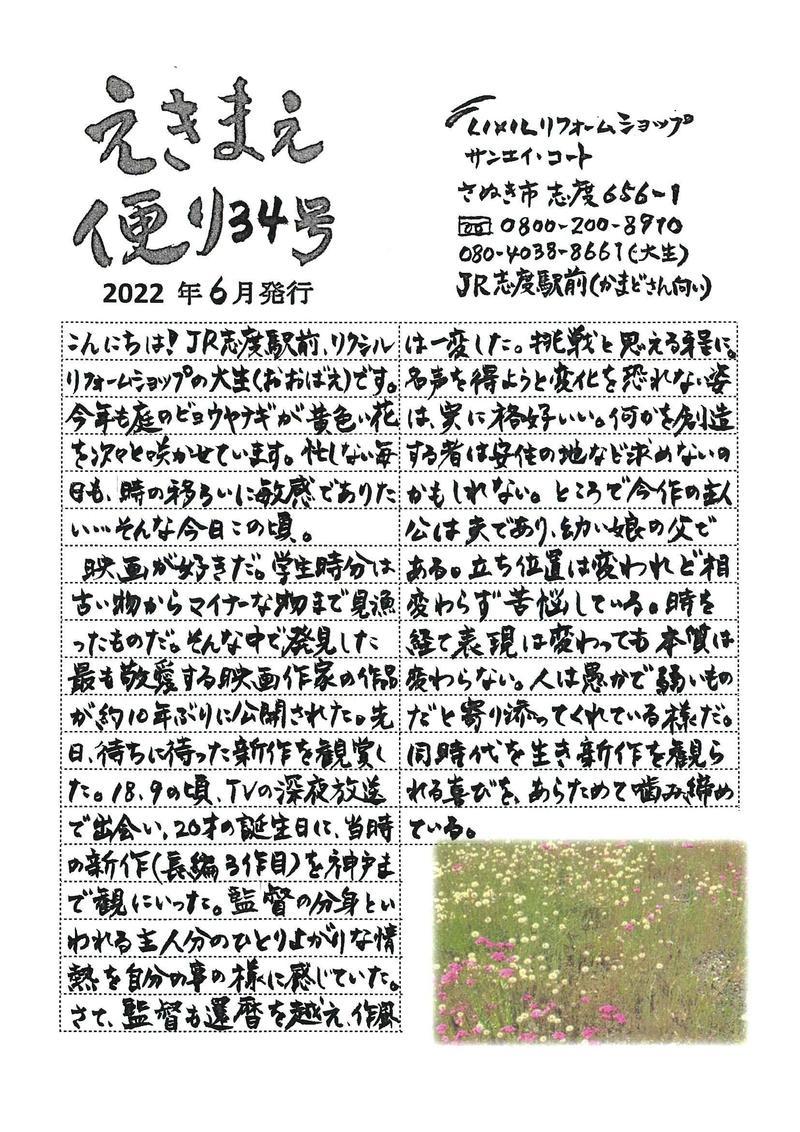 えきまえ
便り34号
2022 年6月発行
LIXILリフォームショップ
サンエイ・コート
さぬき市 志度656-1
0800-200-8910
080-4038-8661(大生)
JR志度駅前(かまどさん向い)
こんにちは!JR志度駅前、リクシル
リフォームショップの大生(おおばえ)です。
今年も庭のビョウヤナギが黄色い花
を次々と咲かせています。忙しない毎
日も、時の移ろいに敏感でありた
い…そんな今日この頃。
映画が好きだ。学生時分は
古い物からマイナーな物まで見漁
ったものだ。そんな中で発見した
最も敬愛する映画作家の作品
が約10年ぶりに公開された。先
日、待ちに待った新作を観賞し
た。18、9の頃、TVの深夜放送
で出会い、20才の誕生日に、当時
の新作(長編3作目)を神戸ま
で観にいった。監督の分身とい
われる主人分のひとりよがりな情
熱を自分の事の様に感じていた。
さて、監督も還暦を越え、作風
は一変した。挑戦と思える程に。
名声を得ようと変化を恐れない姿
は、実に格好いい。何かを創造
する者は安住の地など求めないの
かもしれない。ところで今作の主人
公は夫であり、幼い娘の父で
ある。立ち位置は変われど相
変わらず苦悩している。時を
経て表現は変わっても本質は
変わらない。人は愚かで弱いもの
だと寄り添ってくれている様だ。
同時代を生き新作を観ら
れる喜びを、あらためて噛み締め
ている。